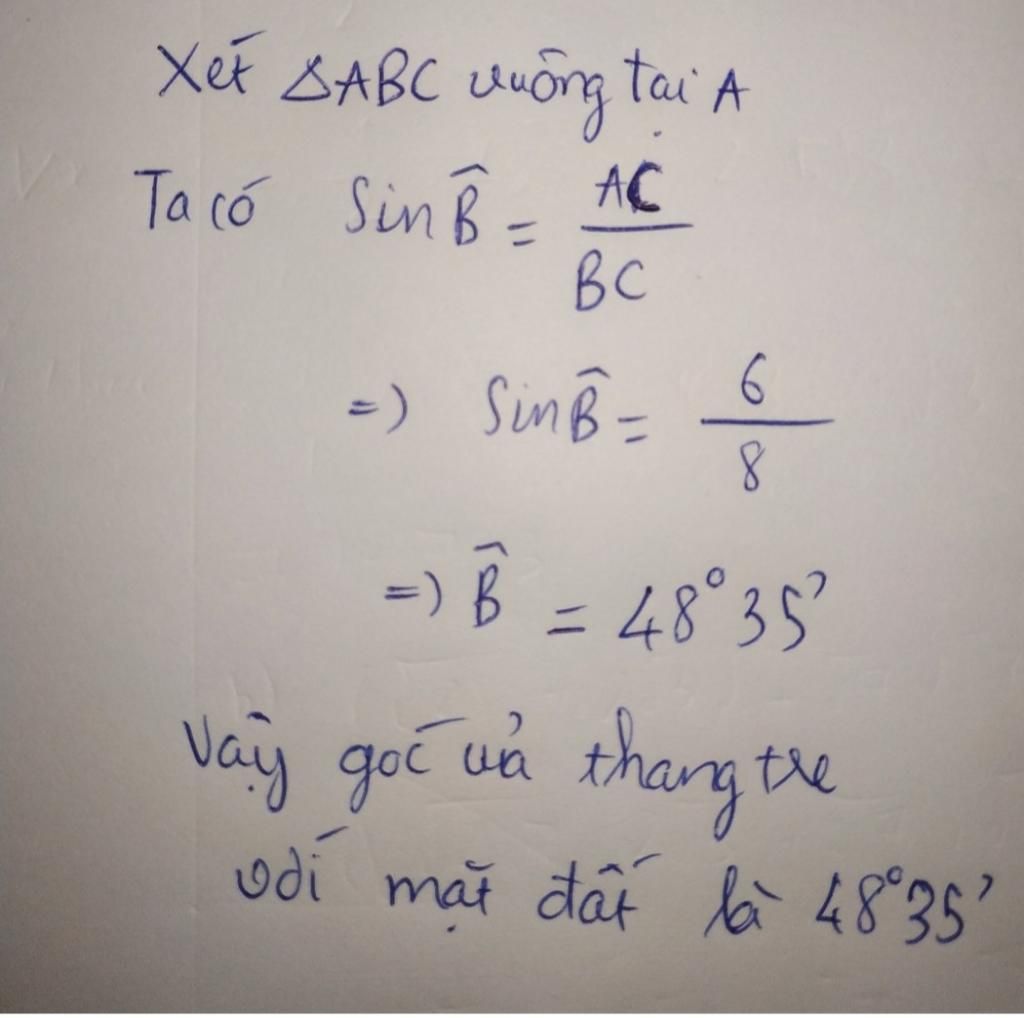 Xét ΔABC vuông tại A
Ta có Sin B̂ = AC/BC
=) Sin B̂ = 6/8
=) B̂ = 48°35'
Vậy góc uả thang tre
với mặt đất là 48°35'